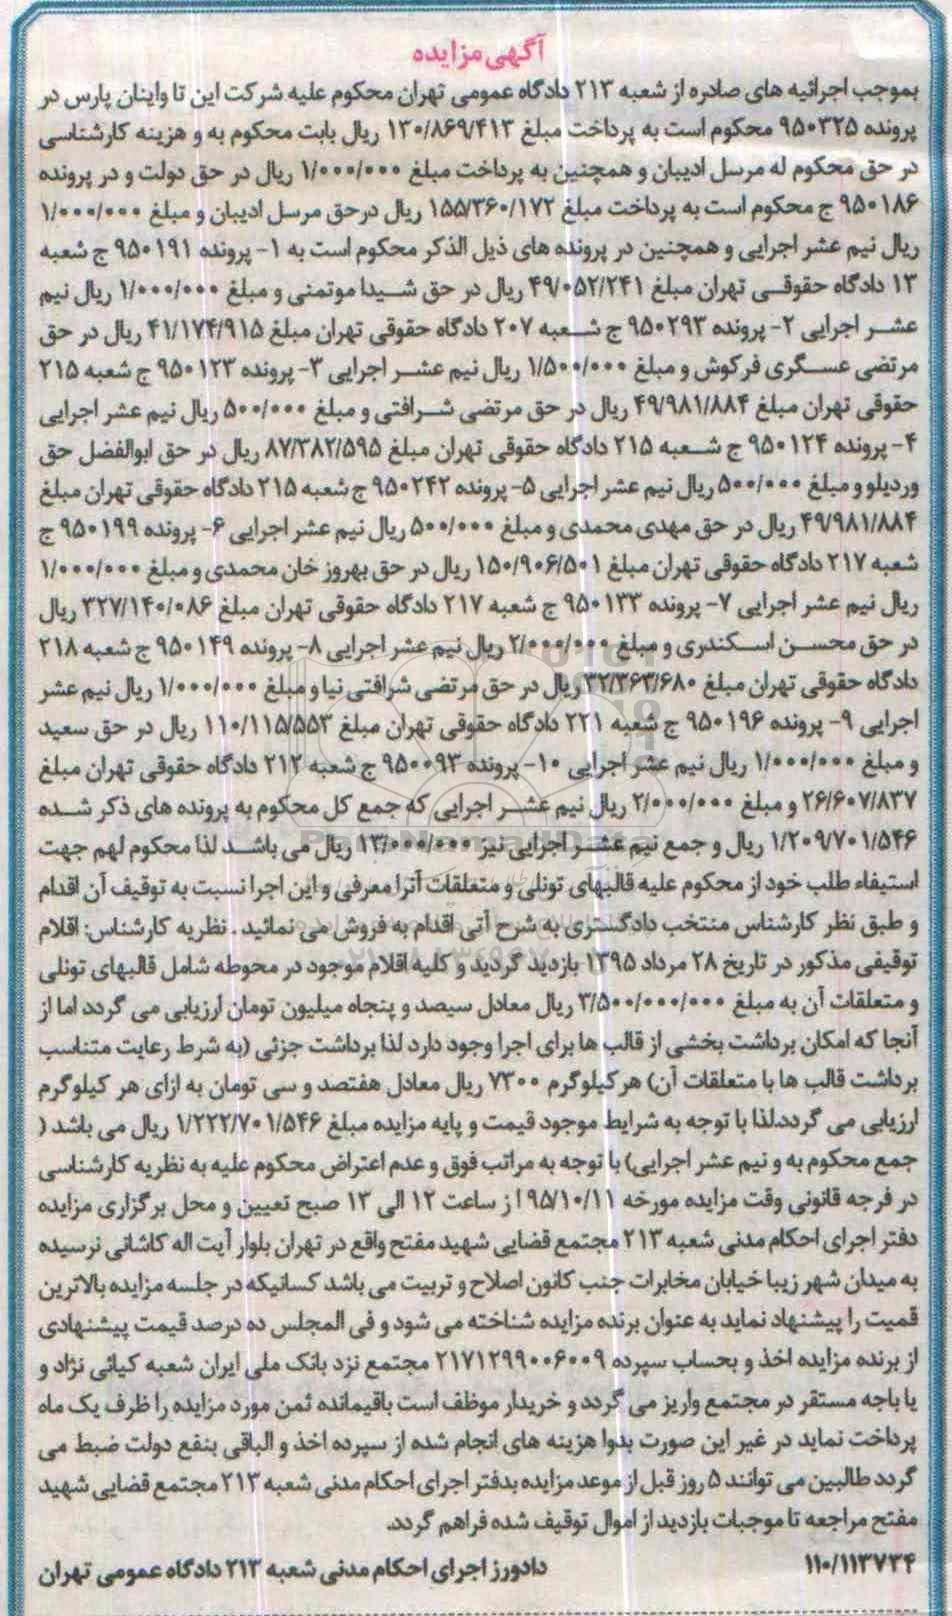 آگهی مزایده
بموجب اجرائیه های صادره از شعبه ۲۱۳ دادگاه عمومی تهران محکوم علیه شرکت این تا واینان پارس در
پرونده ۹۵۰۳۲۵ محکوم است به پرداخت مبلغ ۱۳۰/۸۶۹/۴۱۳ ریال بابت محکوم به و هزینه کارشناسی
در حق محکوم له مرسل ادیبان و همچنین به پرداخت مبلغ ۱/۰۰۰/۰۰۰ ریال در حق دولت و در پرونده
۹۵۰۱۸۶ ج محکوم است به پرداخت مبلغ ۱۵۵/۳۶۰/۱۷۲ ریال درحق مرسل ادیبان و مبلغ ۱/۰۰۰/۰۰۰
ریال نیم عشر اجرایی و همچنین در پرونده های ذیل الذکر محکوم است به ۱- پرونده ۹۵۰۱۹۱ ج شعبه
۱۳ دادگاه حقوقی تهران مبلغ ۴۹/۰۵۲/۲۴۱ ریال در حق شیدا موتمنی و مبلغ ۱/۰۰۰/۰۰۰ ریال نیم
عشر اجرایی ۲- پرونده ۹۵۰۲۹۳ ج شعبه ۲۰۷ دادگاه حقوقی تهران مبلغ ۴۱/۱۷۴/۹۱۵ ریال در حق
مرتضی عسگری فرکوش و مبلغ ۱/۵۰۰/۰۰۰ ریال نیم عشر اجرایی ۳- پرونده ۹۵۰۱۲۳ ج شعبه ۲۱۵
حقوقی تهران مبلغ ۴۹/۹۸۱/۸۸۴ ریال در حق مرتضی شرافتی و مبلغ ۵۰۰/۰۰۰ ریال نیم عشر اجرایی
۴- پرونده ۹۵۰۱۲۴ ج شعبه ۲۱۵ دادگاه حقوقی تهران مبلغ ۸۷/۳۸۲/۵۹۵ ریال در حق ابوالفضل حق
وردیلو و مبلغ ۵۰۰/۰۰۰ ریال نیم عشر اجرایی ۵- پرونده ۹۵۰۲۴۲ ج شعبه ۲۱۵ دادگاه حقوقی تهران مبلغ
۴۹/۹۸۱/۸۸۴ ریال در حق مهدی محمدی و مبلغ ۵۰۰/۰۰۰ ریال نیم عشر اجرایی ۶- پرونده ۹۵۰۱۹۹ ج
شعبه ۲۱۷ دادگاه حقوقی تهران مبلغ ۱۵۰/۹۰۶/۵۰۱ ریال در حق بهروز خان محمدی و مبلغ ۱/۰۰۰/۰۰۰
ریال نیم عشر اجرایی ۷- پرونده ۹۵۰۱۳۳ ج شعبه ۲۱۷ دادگاه حقوقی تهران مبلغ ۳۲۷/۱۴۰/۰۸۶ ریال
در حق محسن اسکندری و مبلغ ۲/۰۰۰/۰۰۰ ریال نیم عشر اجرایی ۸- پرونده ۹۵۰۱۴۹ ج شعبه ۲۱۸
دادگاه حقوقی تهران مبلغ ۳۲/۳۶۳/۶۸۰ ریال در حق مرتضی شرافتی نیا و مبلغ ۱/۰۰۰/۰۰۰ ریال نیم عشر
اجرایی ۹- پرونده ۹۵۰۱۹۶ ج شعبه ۲۲۱ دادگاه حقوقی تهران مبلغ ۱۱۰/۱۱۵/۵۵۳ ریال در حق سعید
و مبلغ ۱/۰۰۰/۰۰۰ ریال نیم عشر اجرایی ۱۰- پرونده ۹۵۰۰۹۳ ج شعبه ۲۱۲ دادگاه حقوقی تهران مبلغ
۲۶/۶۰۷/۸۳۷ و مبلغ ۲/۰۰۰/۰۰۰ ریال نیم عشر اجرایی که جمع کل محکوم به پرونده های ذکر شده
۱/۲۰۹/۷۰۱/۵۴۶ ریال و جمع نیم عشر اجرایی نیز ۱۳/۰۰۰/۰۰۰ ریال می باشد لذا محکوم لهم جهت
استیفاء طلب خود از محکوم علیه قالبهای تونلی و متعلقات آنرا معرفی و این اجرا نسبت به توقیف آن اقدام
و طبق نظر کارشناس منتخب دادگستری به شرح آتی اقدام به فروش می نمائید . نظریه کارشناس: اقلام
توقیفی مذکور در تاریخ ۲۸ مرداد ۱۳۹۵ بازدید گردید و کلیه اقلام موجود در محوطه شامل قالبهای تونلی
و متعلقات آن به مبلغ ۳/۵۰۰/۰۰۰/۰۰۰ ریال معادل سیصد و پنجاه میلیون تومان ارزیابی می گردد اما از
آنجا که امکان برداشت بخشی از قالب ها برای اجرا وجود دارد لذا برداشت جزئی (به شرط رعایت متناسب
برداشت قالب ها با متعلقات آن) هر کیلوگرم ۷۳۰۰ ریال معادل هفتصد و سی تومان به ازای هر کیلوگرم
ارزیابی می گردد.لذا با توجه به شرایط موجود قیمت و پایه مزایده مبلغ ۱/۲۲۲/۷۰۱/۵۴۶ ریال می باشد (
جمع محکوم به و نیم عشر اجرایی) با توجه به مراتب فوق و عدم اعتراض محکوم علیه به نظریه کارشناسی
در فرجه قانونی وقت مزایده مورخه ۹۵/۱۰/۱۱ از ساعت ۱۲ الی ۱۳ صبح تعیین و محل برگزاری مزایده
دفتر اجرای احکام مدنی شعبه ۲۱۳ مجتمع قضایی شهید مفتح واقع در تهران بلوار آیت اله کاشانی نرسیده
به میدان شهر زیبا خیابان مخابرات جنب کانون اصلاح و تربیت می باشد کسانیکه در جلسه مزایده بالاترین
قمیت را پیشنهاد نماید به عنوان برنده مزایده شناخته می شود و فی المجلس ده درصد قیمت پیشنهادی
از برنده مزایده اخذ و بحساب سپرده ۲۱۷۱۲۹۹۰۰۶۰۰۹ مجتمع نزد بانک ملی ایران شعبه کیائی نژاد و
یا باجه مستقر در مجتمع واریز می گردد و خریدار موظف است باقیمانده ثمن مورد مزایده را ظرف یک ماه
پرداخت نماید در غیر این صورت بدوا هزینه های انجام شده از سپرده اخذ و الباقی بنفع دولت ضبط می
گردد طالبین می توانند ۵ روز قبل از موعد مزایده بدفتر اجرای احکام مدنی شعبه ۲۱۳ مجتمع قضایی شهید
مفتح مراجعه تا موجبات بازدید از اموال توقیف شده فراهم گردد.
۱۱۰/۱۱۳۷۳۴ دادورز اجرای احکام مدنی شعبه ۲۱۳ دادگاه عمومی تهران